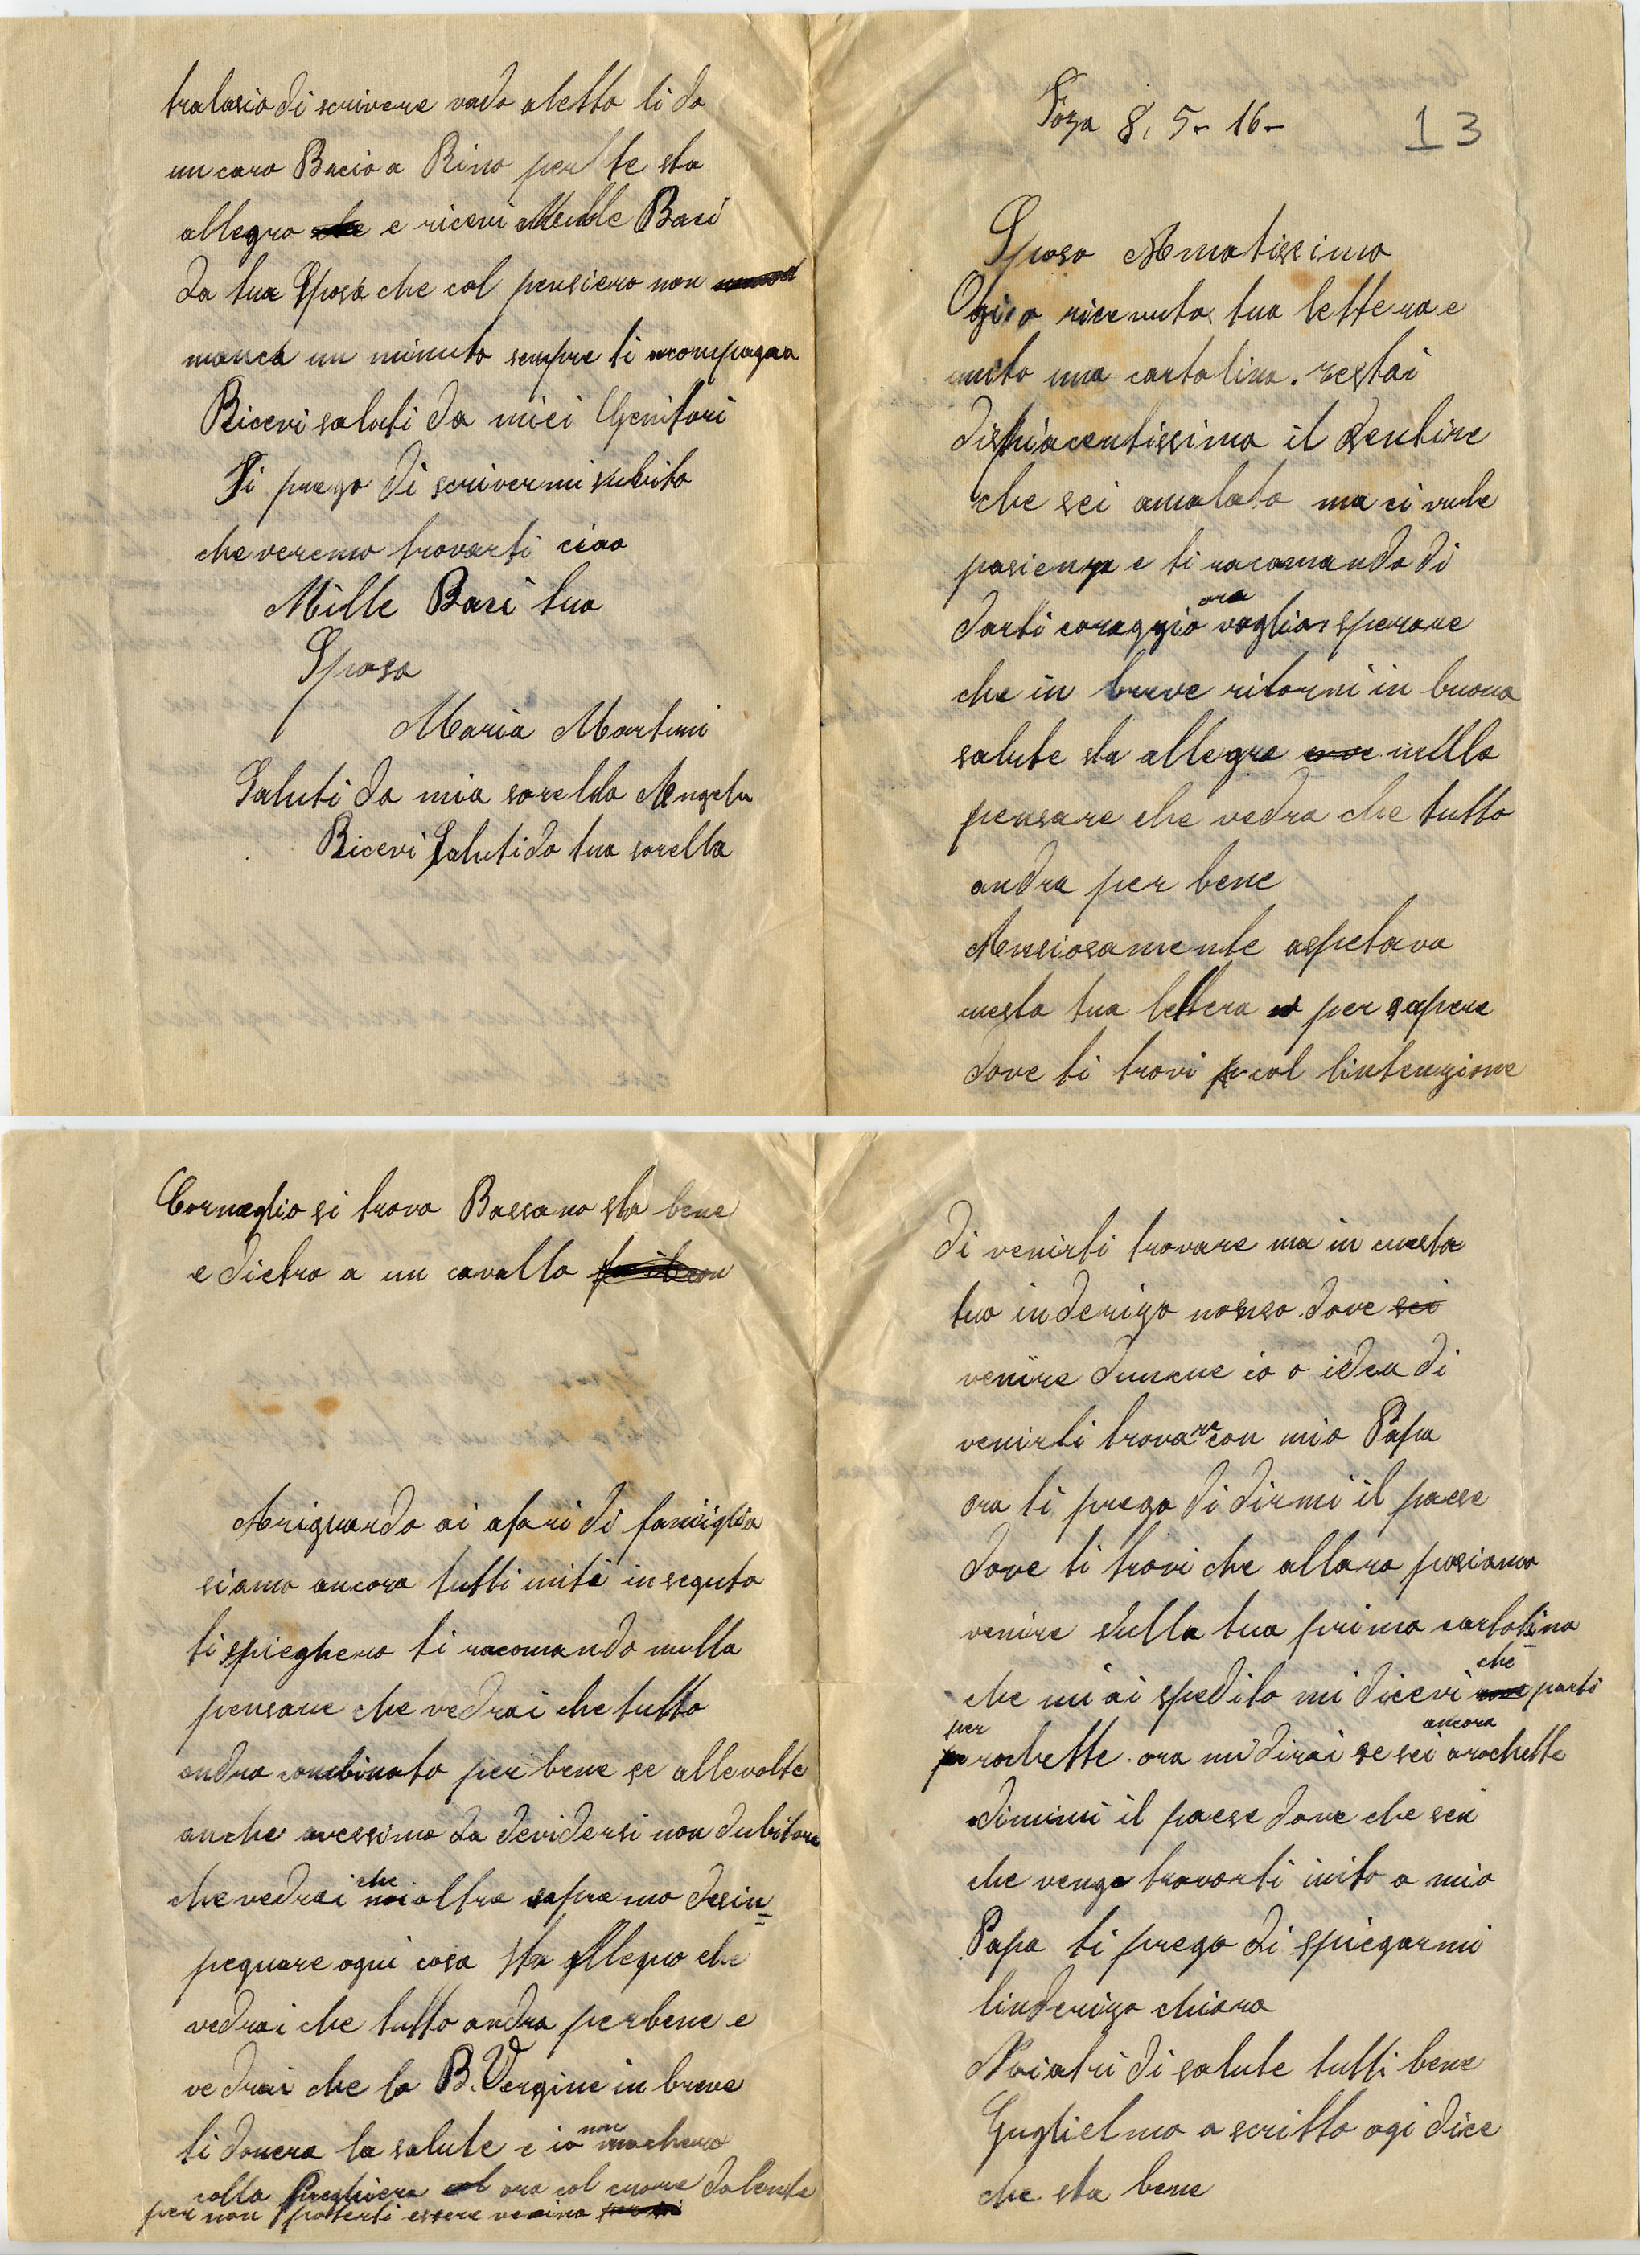 Foza 8, 5- 16-
13
Sposo Amatissimo
Ogi o ricevuto tua lettera e
unito una cartolina. restai
dispiacentissima il sentire
che sei amalato ma ci vule
pasienza e ti racomando di
darti coraggio ora voglio sperare
che in breve ritorni in buona
salute sta allegro nulla
pensare che vedra che tutto
andra per bene
Ansiosamente aspetava
questa tua lettera per sapere
dove ti trovi col lintenzione
di venirti trovare ma in questa
tuo inderizo nonso dove sei
venire dunque io o idea di
venirti trovare con mio Papa
ora ti prego di dirmi il paese
dove ti trovi che allora posiamo
venire sulla tua prima cartolina
che mi ai spedito mi dicevi che parti
per rochette ora mi dirai se sei ancora arochette
dimmi il paese dove che sei
che venga trovarti unito a mio
Papa ti prego di spiegarmi
linderizo chiaro
Noiatri di salute tutti bene
Guglielmo a scritto ogi dice
che sta bene
Corneglio si trova Bassano sta bene
e dietro a un cavallo
Ariguardo ai afari di famiglia
siamo ancora tutti uniti in seguto
ti spieghero ti racomando nulla
pensare che vedrai che tutto
andra combinato per bene se allevolte
anche avessimo da devidersi non dubitare
che vedrai che noialtra sapramo desin=
pegnare ogni cosa sta allegro che
vedrai che tutto andra perbene e
vedrai che la B. Vergine in breve
ti donera la salute e io non macherò
colla Preghiera ora col cuore dolente
per non poterti essere vecino
tralasio di scrivere vado aletto ti do
un caro Bacio a Rino per te sta
allegro e ricevi Mille Baci
da tua Sposa che col pensiero non
manca un minuto sempre ti acompagna
Ricevi saluti da miei Genitori
Ti prego di scrivermi subito
che veremo trovarti ciao
Mille Baci tua
Sposa
Maria Martini
Saluti da mia sorella Angela
Ricevi Saluti da tua sorella